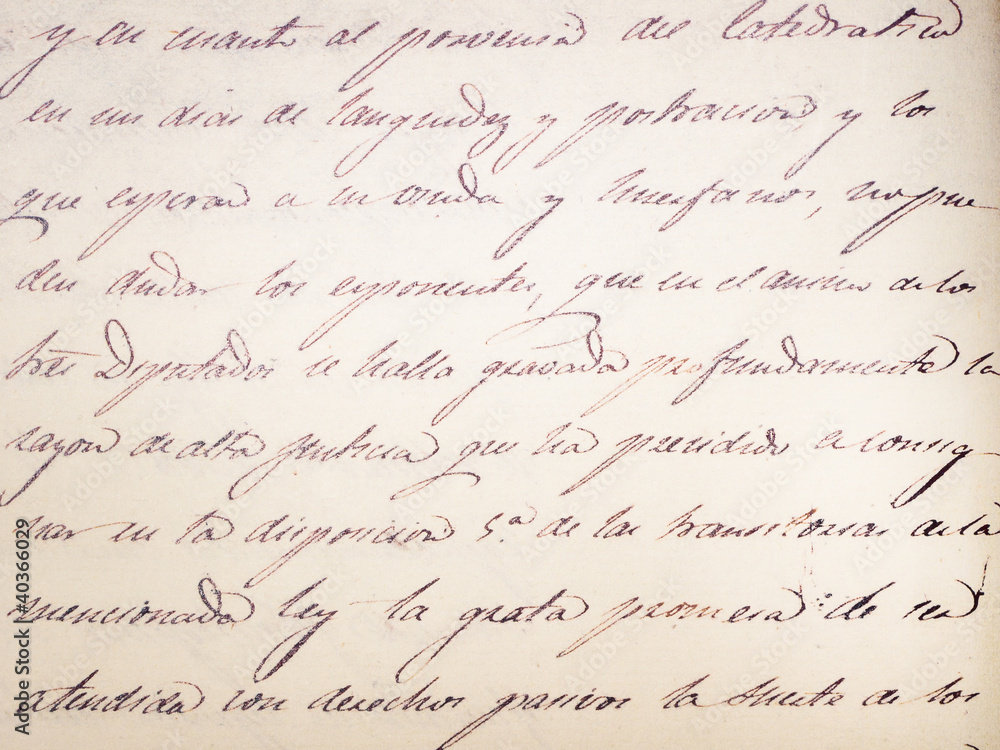 y en cuanto al porvenir del catedratico
en sus dias de languidez y postracion, y los
que esperan a su viuda y huerfanos, no pue
den dudar los exponentes, que en el animo de los
tres Diputados se halla gravada profundamente la
razon de alta justicia que ha presidido a consig
nar en la disposicion 5.ª de las transitorias de la
mencionada ley la grata promesa de ser
atendida con derechos pasivos la suerte de los
Adobe Stock | #40366029